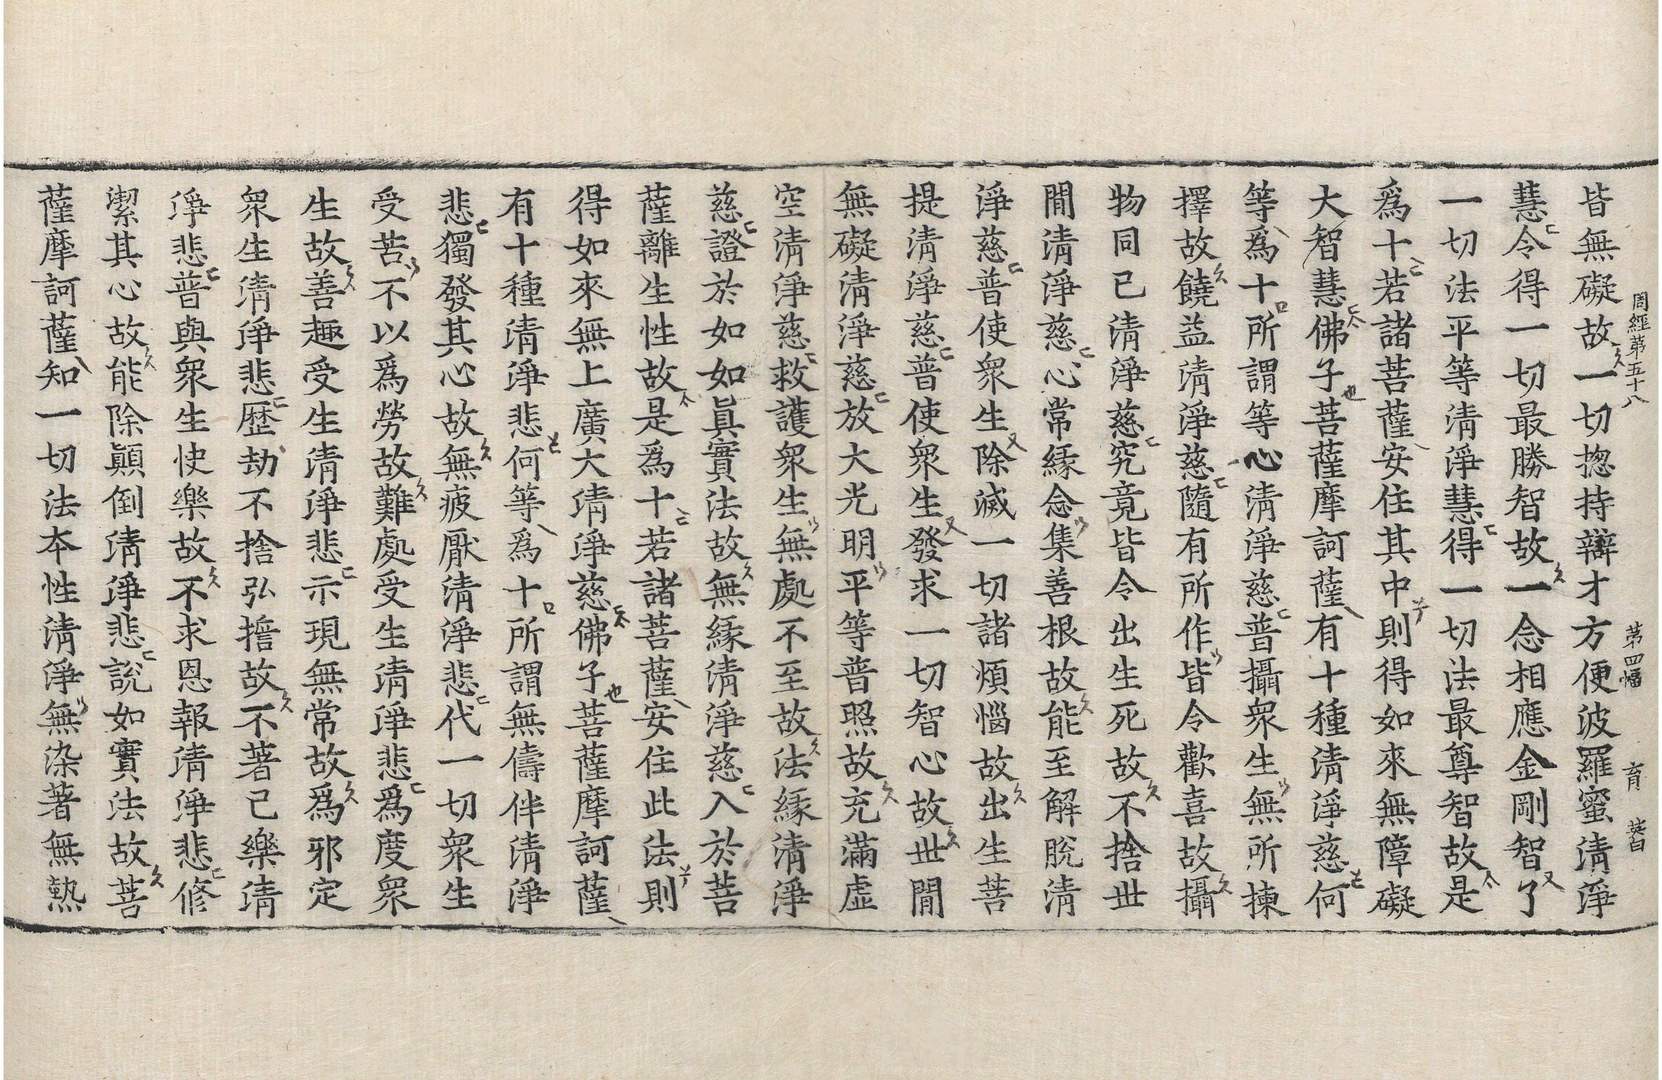 周經第五十八 第四幅 育 昔
皆無礙故一切揔持辯才方便波羅蜜清淨
慧令得一切最勝智故一念相應金剛智了
一切法平等清淨慧得一切法最尊智故是
爲十若諸菩薩安住其中則得如來無障礙
大智慧佛子菩薩摩訶薩有十種清淨慈何
等爲十所謂等心清淨慈普攝衆生無所揀
擇故饒益清淨慈隨有所作皆令歡喜故攝
物同己清淨慈究竟皆令出生死故不捨世
間清淨慈心常緣念集善根故能至解脫清
淨慈普使衆生除滅一切諸煩惱故出生菩
提清淨慈普使衆生發求一切智心故世間
無礙清淨慈放大光明平等普照故充滿虛
空清淨慈救護衆生無處不至故法緣清淨
慈證於如如眞實法故無緣清淨慈入於菩
薩離生性故是爲十若諸菩薩安住此法則
得如來無上廣大清淨慈佛子菩薩摩訶薩
有十種清淨悲何等爲十所謂無儔伴清淨
悲獨發其心故無疲厭清淨悲代一切衆生
受苦不以爲勞故難處受生清淨悲爲度衆
生故善趣受生清淨悲示現無常故爲邪定
衆生清淨悲歷劫不捨弘擔故不著己樂清
淨悲普與衆生快樂故不求恩報清淨悲修
潔其心故能除顚倒清淨悲說如實法故菩
薩摩訶薩知一切法本性清淨無染著無熱